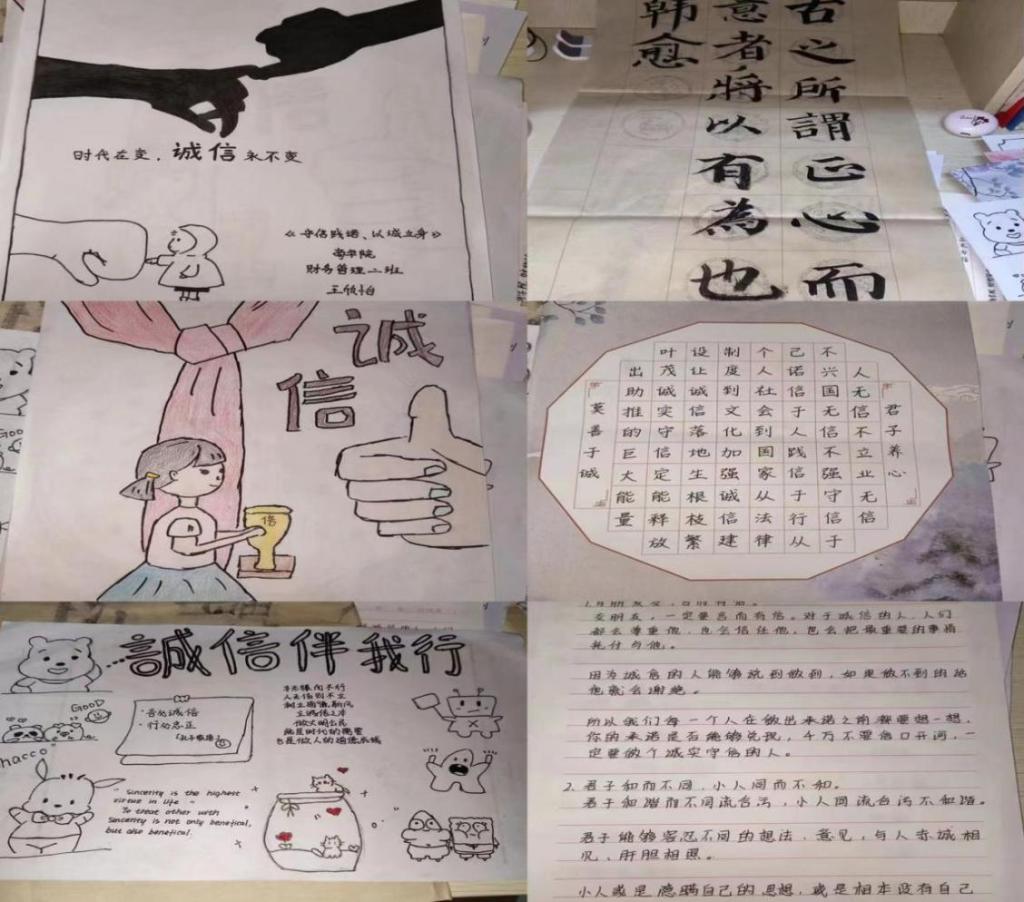 时代在变，诚信永不变
《守信践诺、以诚立身》
商学院
财务管理二班
古之所謂正心而
意者將以有為也
韩愈
誠
信
信
君子养心
人无信不立业无信
不兴国无信不强守信于
己诺信于人践信于行从
个人社会到国家从法律
制度到文化加强诚信建
设让诚信落地生根枝繁
叶茂诚实守信定能释放
出助推的巨大能量
莫善于诚
誠信伴我行
GOOD
·言必诚信
·行必忠正
《孔子家语》
人无信则不立
做文明公民
也是做人的道德底线
hacco
Sincerity is the highest
virtue in life
To treat other with
Sincerity is not only benefical,
but also benefical.
交朋友，一定要言而有信。对于诚信的人，人们
都会尊重他，也会信任他，也会把最重要的事情
托付与他。
因为诚信的人能够说到做到，如果做不到的话
他就会谢绝。
所以我们每一个人在做出承诺之前都要想一想，
你的承诺是否能够兑现，千万不要信口开河，一
定要做个诚实守信的人。
2. 君子和而不同，小人同而不和。
君子和谐而不同流合污，小人同流合污不和谐。
君子能够容忍不同的想法、意见，与人赤诚相
见，肝胆相照。
小人或是隐瞒自己的思想，或是根本没有自己